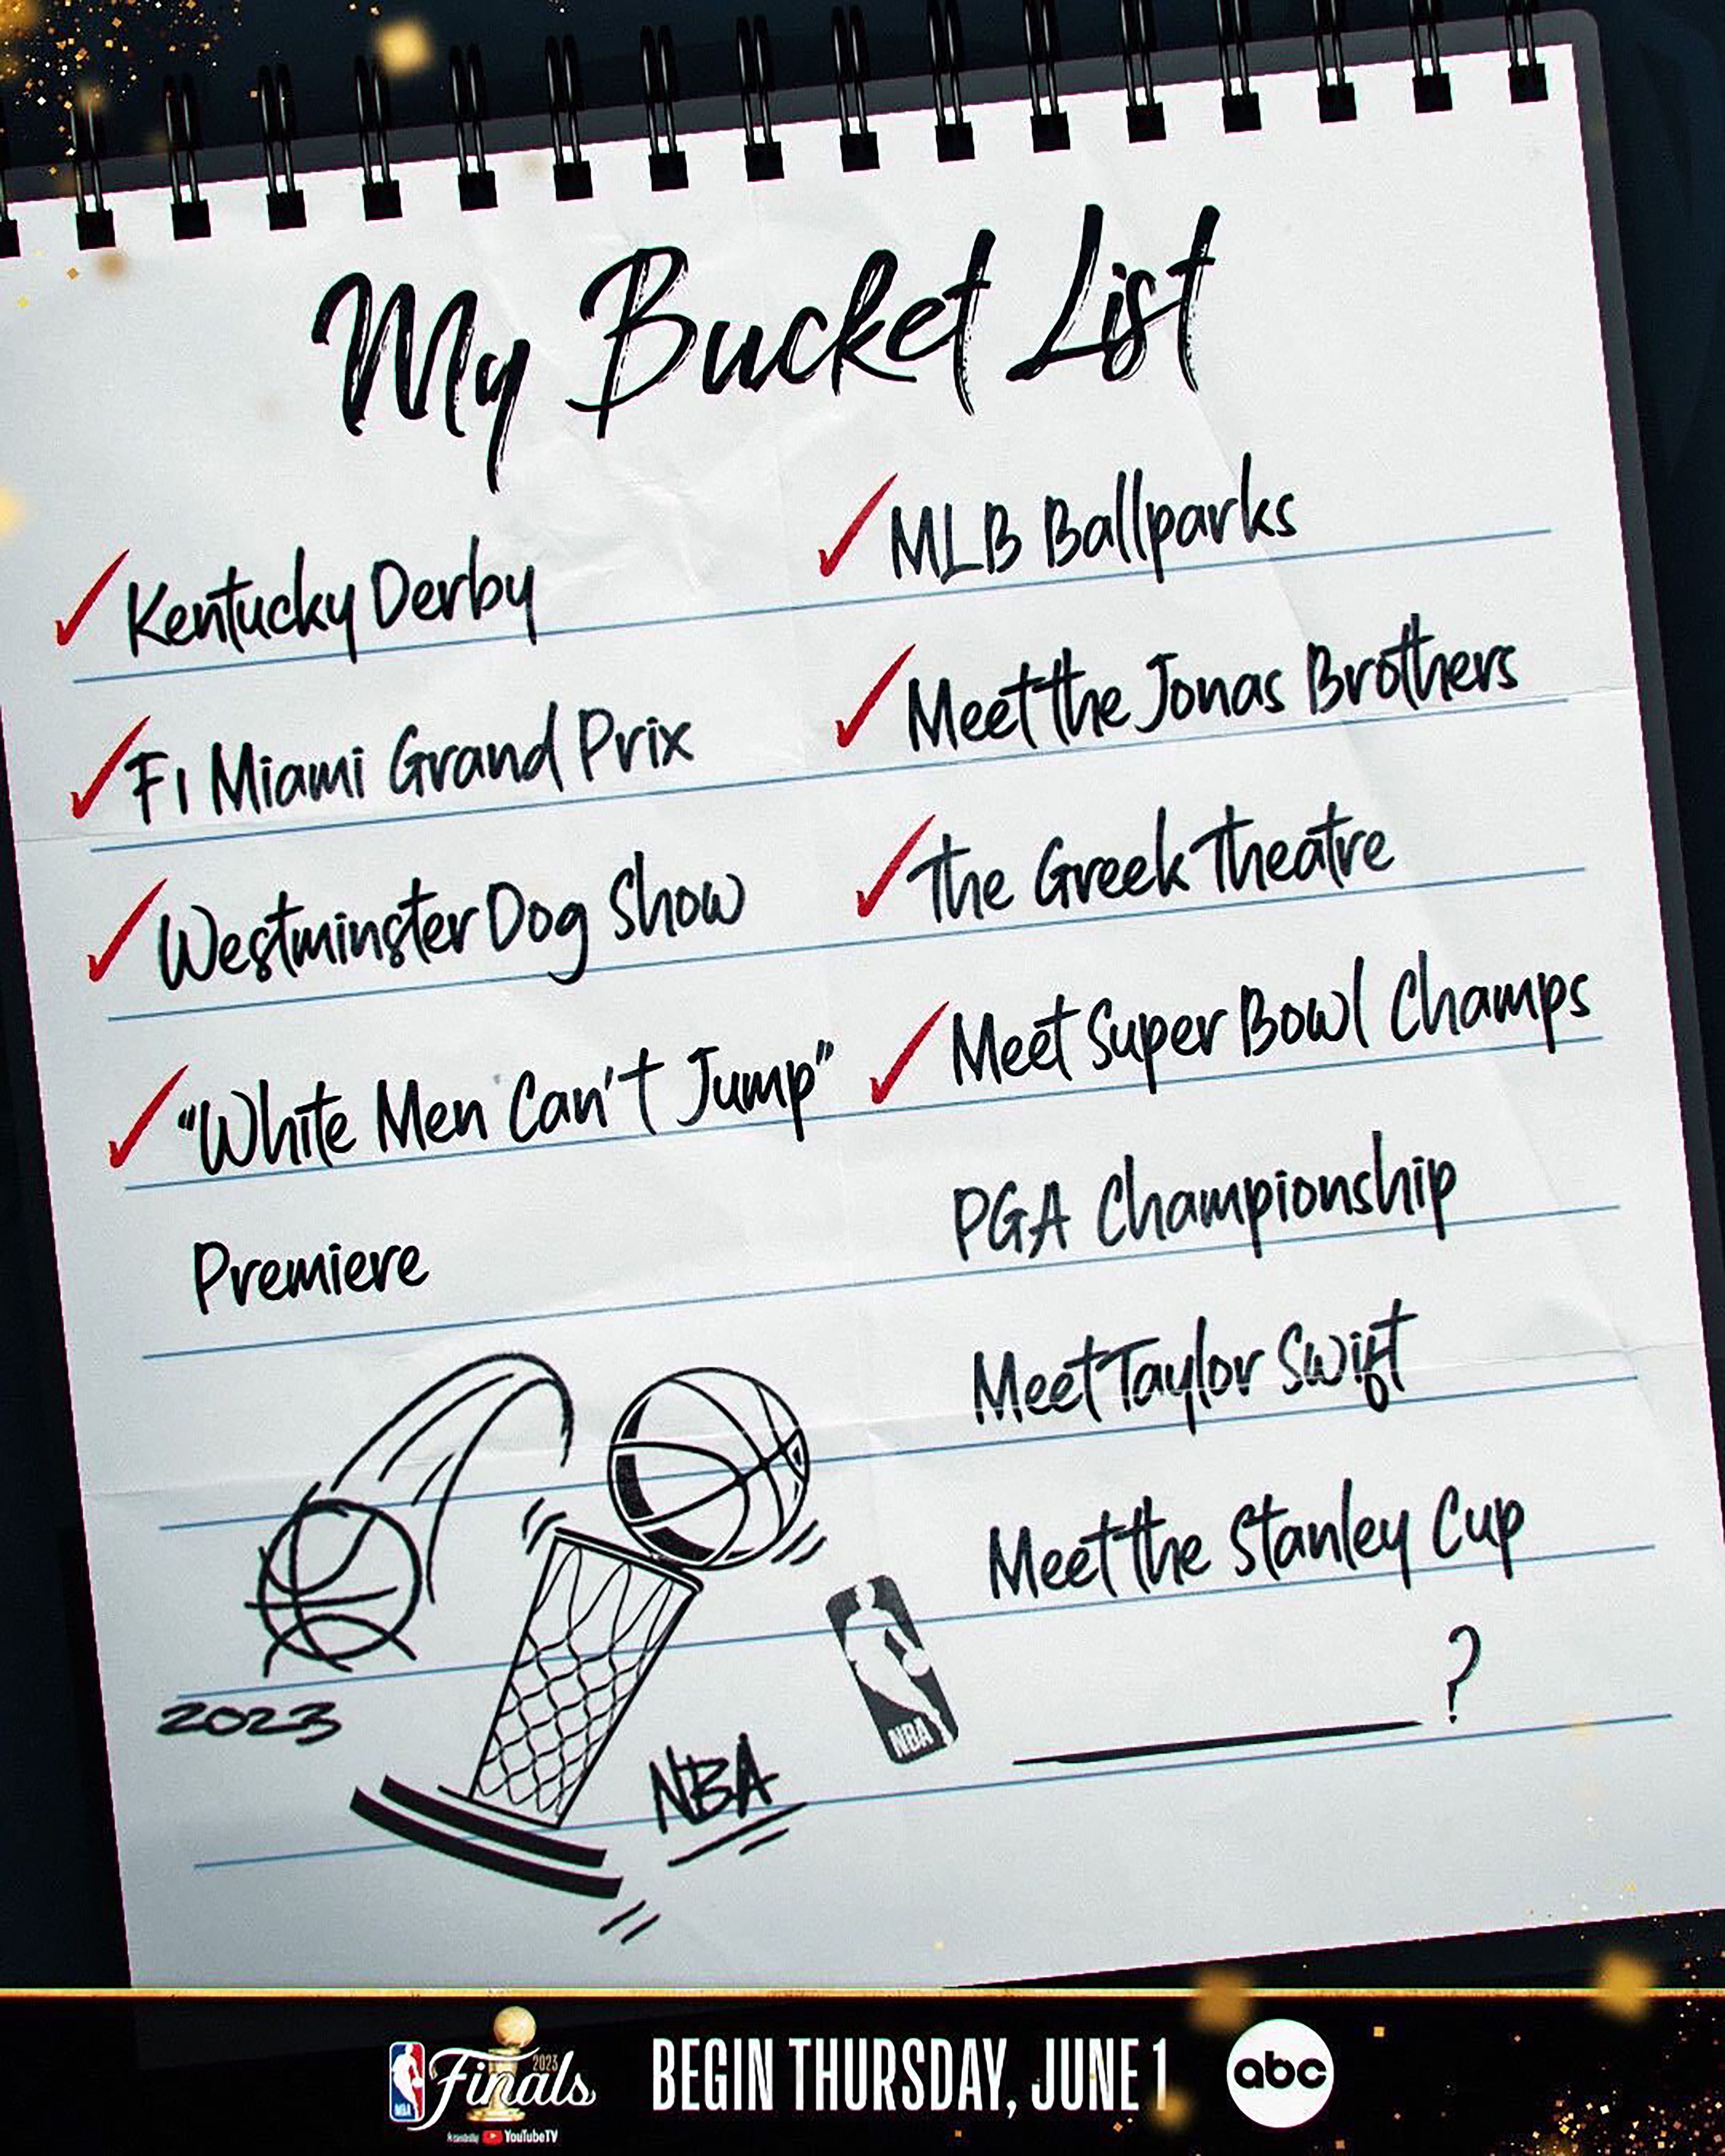 My Bucket List
Kentucky Derby
F1 Miami Grand Prix
Westminster Dog Show
"White Men Can't Jump"
Premiere
MLB Ballparks
Meet the Jonas Brothers
The Greek Theatre
Meet Super Bowl Champs
PGA Championship
Meet Taylor Swift
Meet the Stanley Cup
?
2023
NBA
NBA
NBA
2023
Finals
Presented by YouTubeTV
BEGIN THURSDAY, JUNE 1
abc